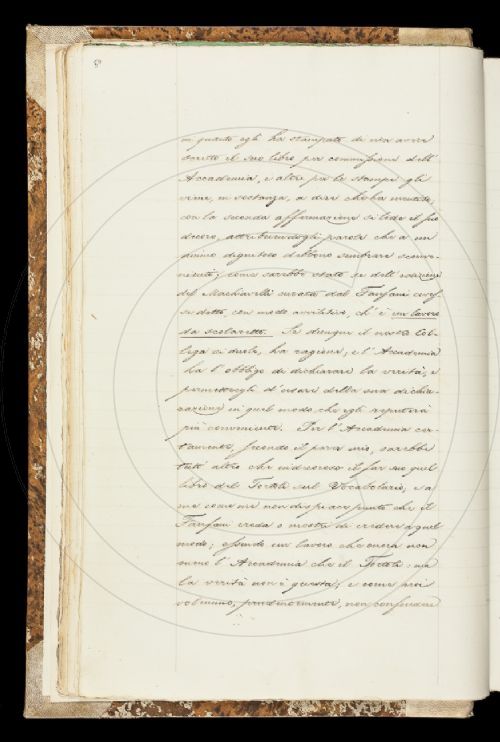 in quanto egli ha stampato di non avere
scritto il suo libro per commissione dell'
Accademia, e altri per le stampe gli
viene, in sostanza, a dire che ha mentito;
con la seconda affermazione si lede il suo
decoro, attribuendogli parole che a un
animo dignitoso debbono sembrare sconve-
nienti; come sarebbe stato se dell'edizione
del Machiavelli curata dal Fanfani aves-
se detto, con modo avvilitivo, ch'è un lavoro
da scolaretto. Se dunque il nostro Col-
lega si duole, ha ragione; e l'Accademia
ha l'obbligo di dichiarare la verità, e
permettergli d'usare della sua dichia-
razione in quel modo che egli reputerà
più conveniente. Per l'Accademia cer-
tamente, secondo il parer mio, sarebbe
tutt'altro che indecoroso il far suo quel
libro del Tortoli sul Vocabolario, e a
me come me non dispiace punto che il
Fanfani creda o mostri di credere a quel
modo; essendo un lavoro che onora non
meno l'Accademia che il Tortoli: ma
la verità non è questa; e come poi
volemmo, prudentemente, non confondere